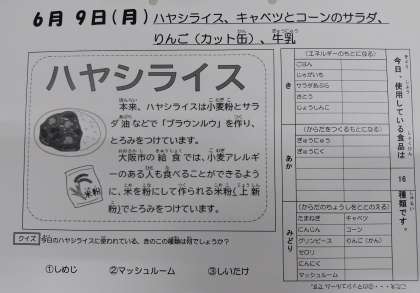 6月 9日(月) ハヤシライス、キャベツとコーンのサラダ、
りんご(カット缶)、牛乳
ハヤシライス
本来、ハヤシライスは小麦粉とサラ
ダ油などで「ブラウンルウ」を作り、
とろみをつけています。
大阪市の給食では、小麦アレルギ
ーのある人も食べることができるよう
に、米を粉にして作られる米粉(上新
粉)でとろみをつけています。
米粉
クイズ 今日のハヤシライスに使われている、きのこの種類は何でしょうか?
①しめじ ②マッシュルーム ③しいたけ
今日、使用している食品は
16
種類です。
き
(エネルギーのもとになる)
ごはん
じゃがいも
サラダあぶら
さとう
じょうしんこ
あか
(からだをつくるもとになる)
ぎゅうにゅう
ぎゅうにく
みどり
(からだのちょうしをととのえる)
たまねぎ キャベツ
にんじん コーン
グリンピース りんご(かん)
セロリ
にんにく
マッシュルーム